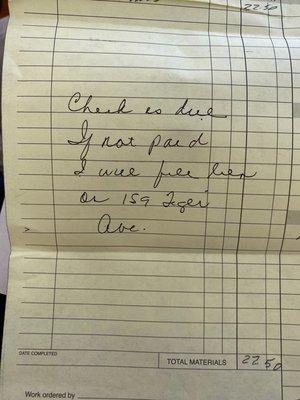 2250
Check is due
If not paid
I will file lien
on 159
Ave.
DATE COMPLETED
TOTAL MATERIALS 2250
Work ordered by